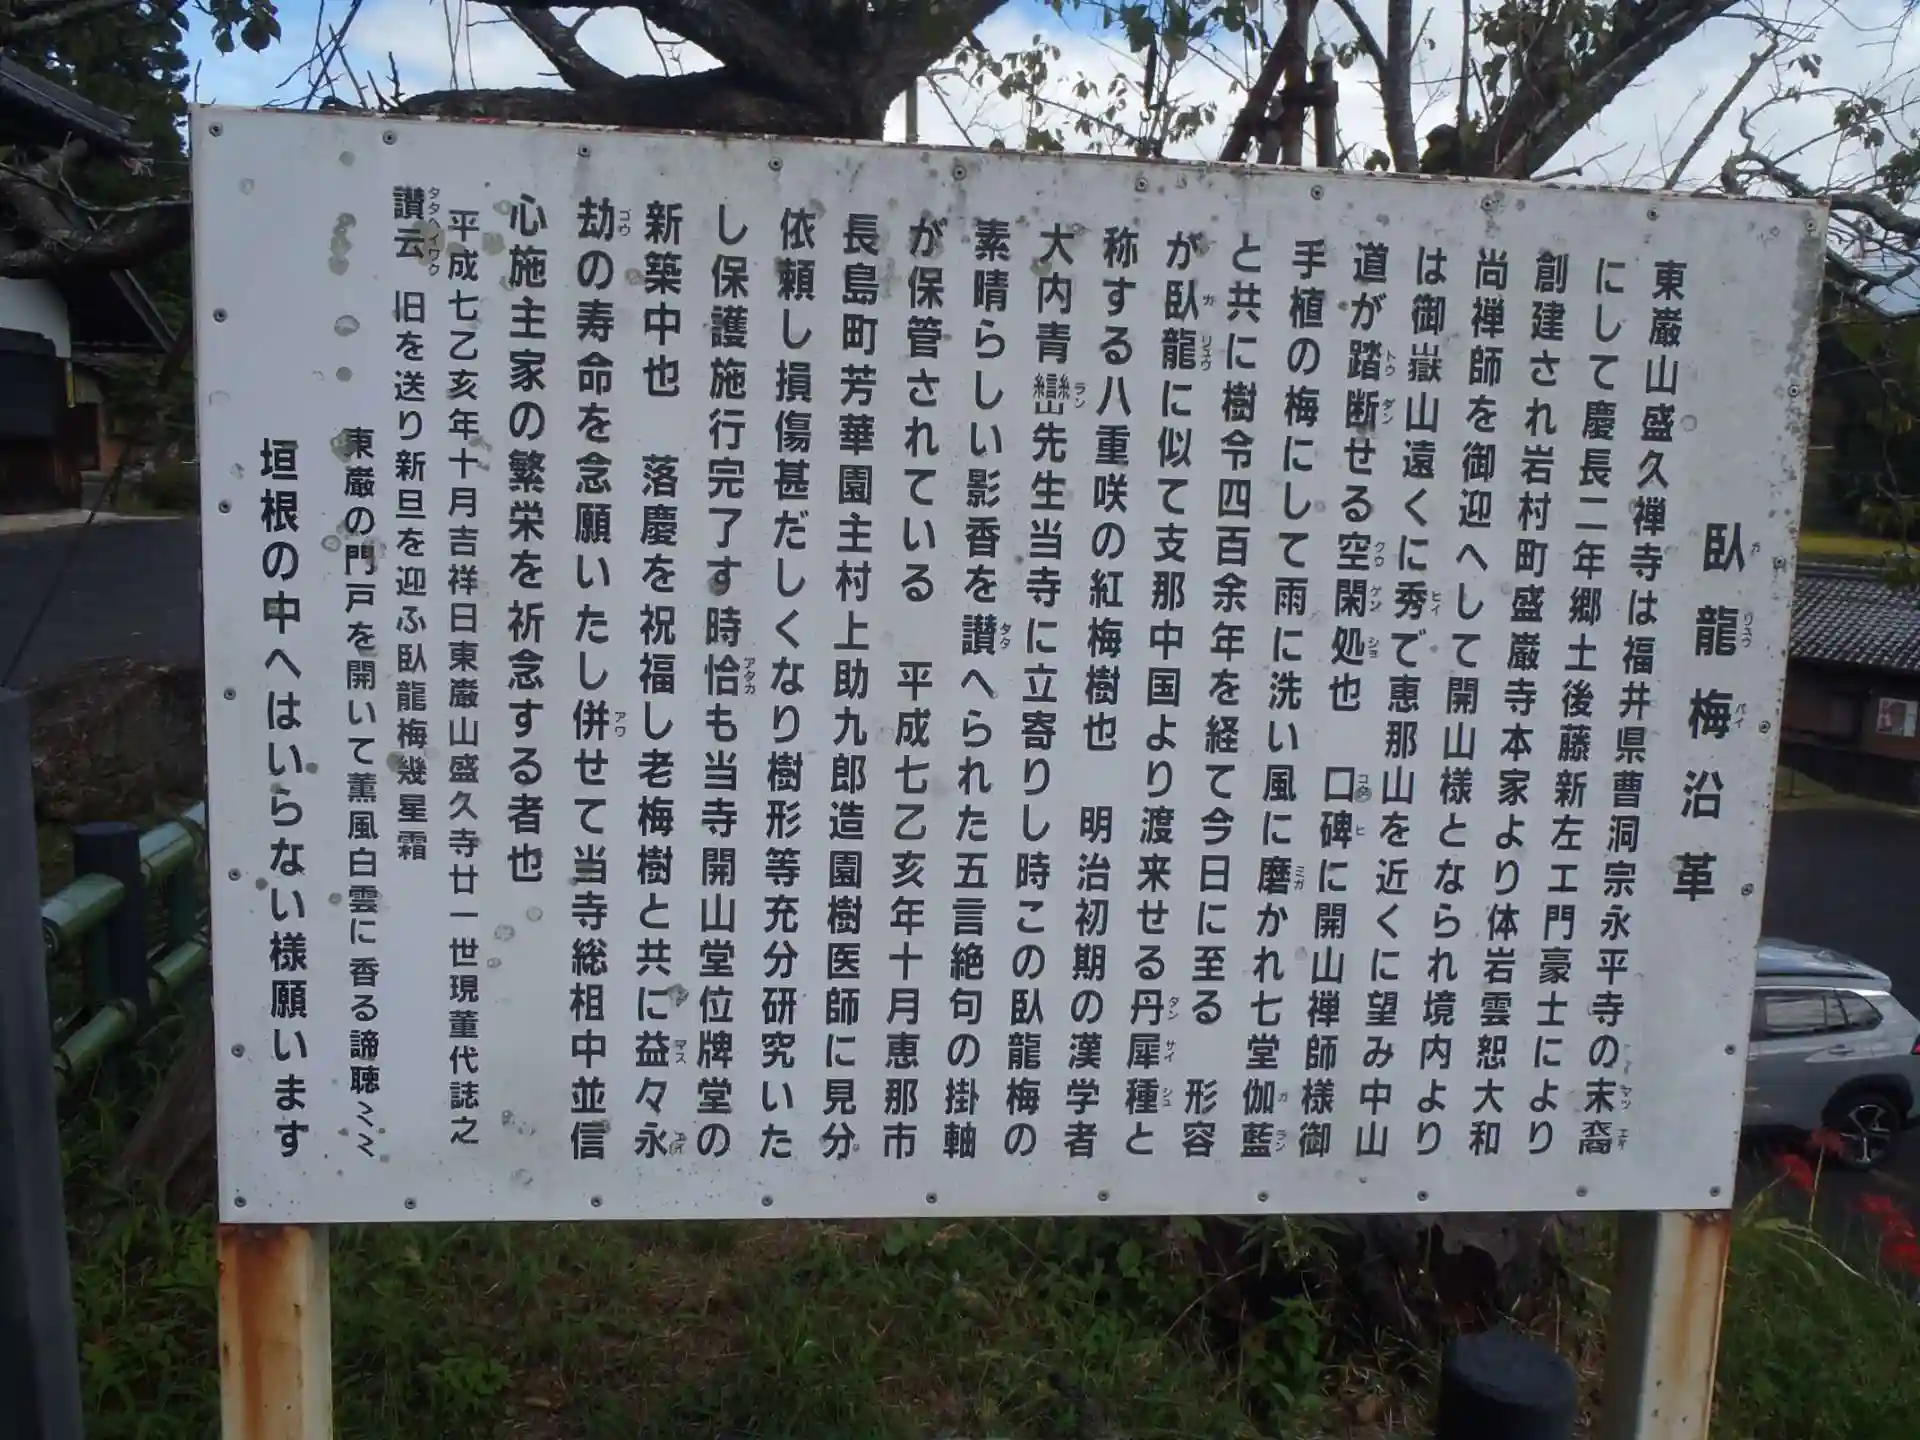 臥龍梅沿革
東巌山盛久禅寺は福井県曹洞宗永平寺の末裔
にして慶長二年郷土後藤新左エ門豪士により
創建され岩村町盛巌寺本家より体岩雲恕大和
尚禅師を御迎へして開山様となられ境内より
は御嶽山遠くに秀で恵那山を近くに望み中山
道が踏断せる空閑処也　口碑に開山禅師様御
手植の梅にして雨に洗い風に磨かれ七堂伽藍
と共に樹令四百余年を経て今日に至る　形容
が臥龍に似て支那中国より渡来せる丹犀種と
称する八重咲の紅梅樹也　明治初期の漢学者
大内青巒先生当寺に立寄りし時この臥龍梅の
素晴らしい影香を讃へられた五言絶句の掛軸
が保管されている　平成七乙亥年十月恵那市
長島町芳華園主村上助九郎造園樹医師に見分
依頼し損傷甚だしくなり樹形等充分研究いた
し保護施行完了す時恰も当寺開山堂位牌堂の
新築中也　落慶を祝福し老梅樹と共に益々永
劫の寿命を念願いたし併せて当寺総祖中並信
心施主家の繁栄を祈念する者也
平成七乙亥年十月吉祥日東巌山盛久寺廿一世現董代誌之
讃云　旧を送り新旦を迎ふ臥龍梅幾星霜
東巌の門戸を開いて薫風白雲に香る諦聴〻〻
垣根の中へはいらない様願います